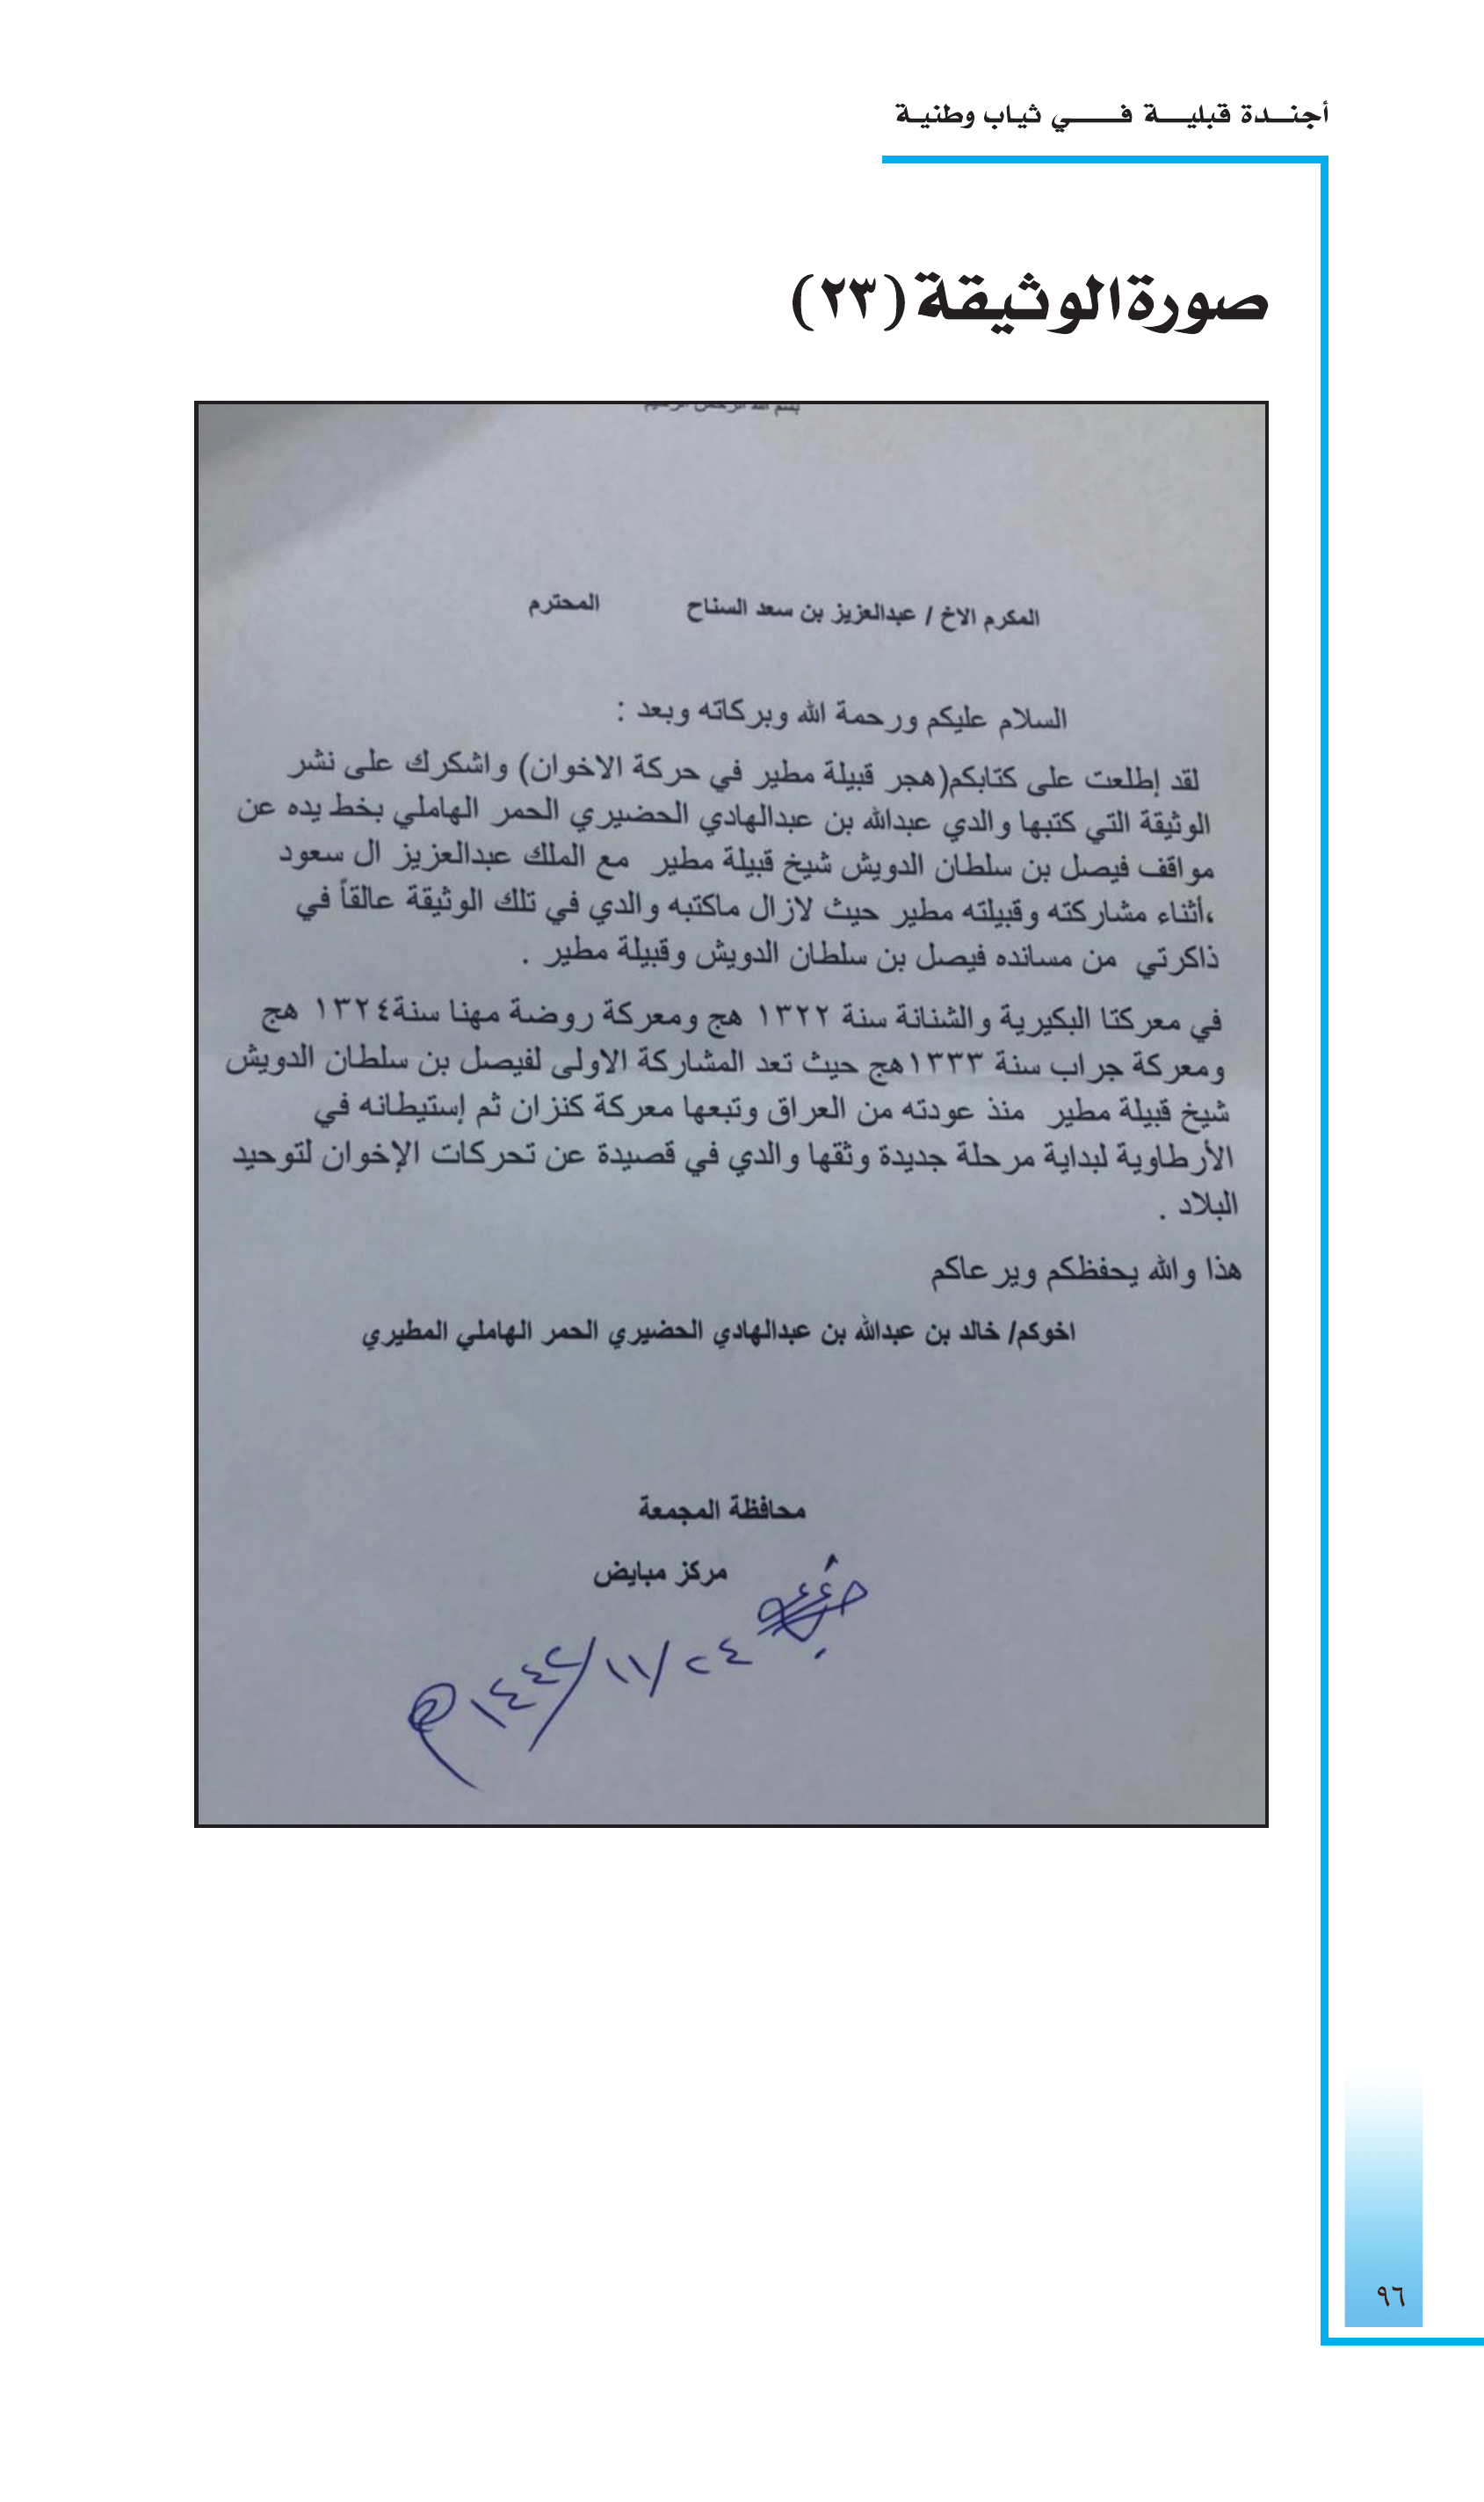 أجنــدة قبليــــة فـــــــي ثيـاب وطنيـة
صورة الوثيقة (٢٣)
بسم الله الرحمن الرحيم
المكرم الاخ / عبدالعزيز بن سعد السناح المحترم
السلام عليكم ورحمة الله وبركاته وبعد :
لقد إطلعت على كتابكم(هجر قبيلة مطير في حركة الاخوان) واشكرك على نشر
الوثيقة التي كتبها والدي عبدالله بن عبدالهادي الحضيري الحمر الهاملي بخط يده عن
مواقف فيصل بن سلطان الدويش شيخ قبيلة مطير مع الملك عبدالعزيز ال سعود
،أثناء مشاركته وقبيلته مطير حيث لازال ماكتبه والدي في تلك الوثيقة عالقاً في
ذاكرتي من مسانده فيصل بن سلطان الدويش وقبيلة مطير .
في معركتا البكيرية والشنانة سنة ١٣٢٢ هج ومعركة روضة مهنا سنة١٣٢٤ هج
ومعركة جراب سنة ١٣٣٣هج حيث تعد المشاركة الاولى لفيصل بن سلطان الدويش
شيخ قبيلة مطير منذ عودته من العراق وتبعها معركة كنزان ثم إستيطانه في
الأرطاوية لبداية مرحلة جديدة وثقها والدي في قصيدة عن تحركات الإخوان لتوحيد
البلاد .
هذا والله يحفظكم ويرعاكم
اخوكم/ خالد بن عبدالله بن عبدالهادي الحضيري الحمر الهاملي المطيري
محافظة المجمعة
مركز مبايض
٢٤/١١/١٤٤٢ه
٩٦